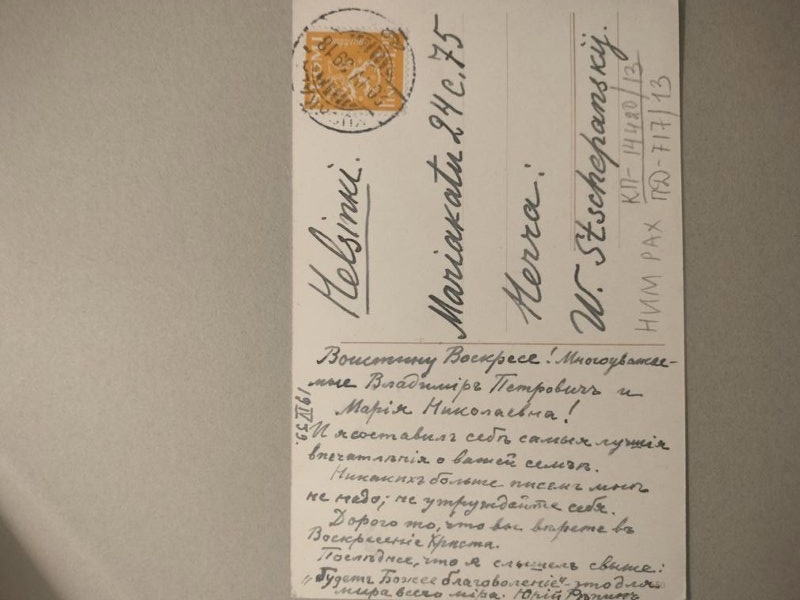 Helsinki.
Mariakatu 24 c. 75
Herra:
W. Stschepanskij.
КП-14420/13
НИМ РАХ ПД-717/13
19 IV 39.
Воистину Воскресе! Многоуважае-
мые Владимiръ Петровичъ и
Марiя Николаевна!
И я составилъ себѣ самыя лучшiя
впечатлѣнiя о вашей семьѣ.
Никакихъ больше писемъ мнѣ
не надо; не утруждайте себя.
Дорого то, что вы вѣрете въ
Воскресенiе Христа.
Послѣднее, что я слышалъ свыше:
"Будетъ Божее благоволенiе" - это для
мира всего мiра. Юрiй Рѣпинъ